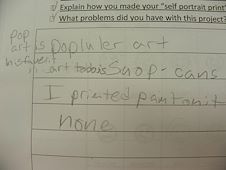 Explain how you made your "self portrait print"
What problems did you have with this project?
pop art is popluler art
in art
Snop-cans
I printed pant on it
none